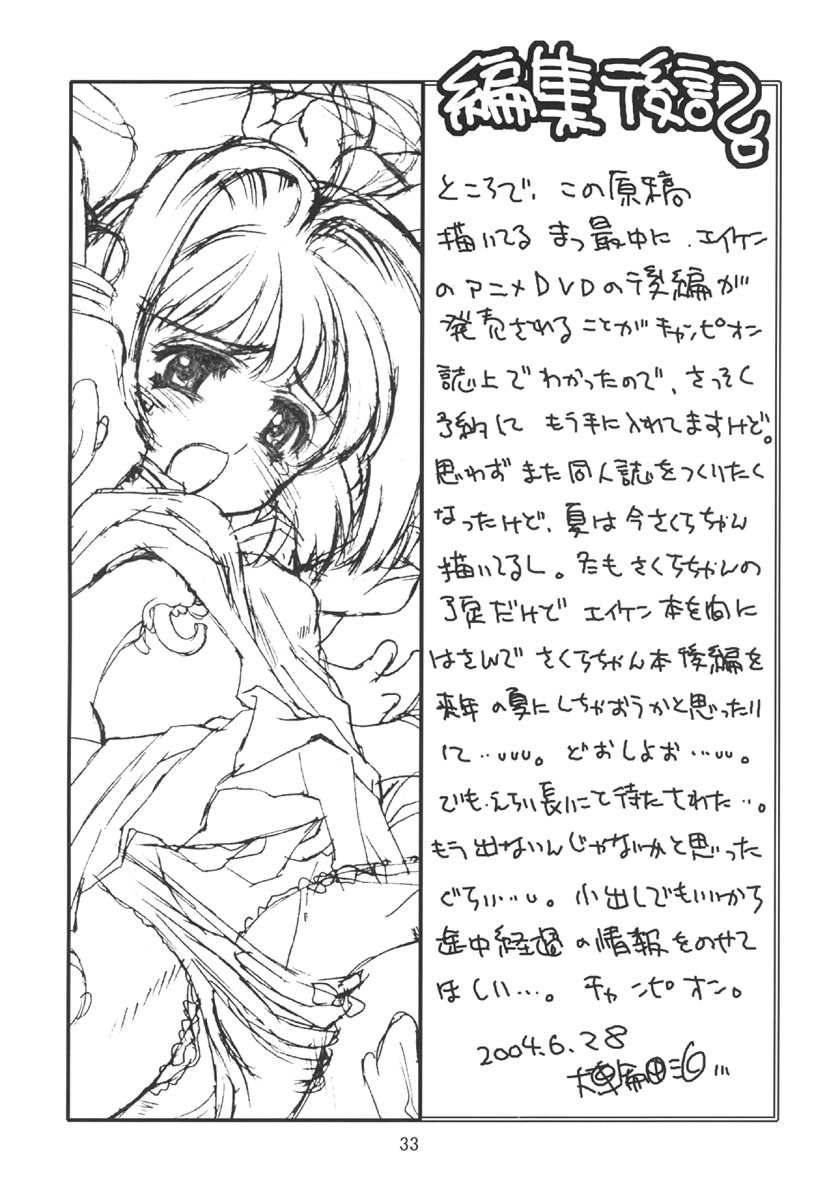 編集後記。
ところで、この原稿
描いてる まっ最中に、エイケン
のアニメDVDの後編が
発売されることがチャンピオン
誌上でわかったので、さっそく
予約して もう手に入れてますけど。
思わず また同人誌をつくりたく
なったけど、夏は今さくらちゃん
描いてるし。冬もさくらちゃんの
予定だけど エイケン本を間に
はさんで さくらちゃん本後編を
来年の夏にしちゃおうかと思ったり
して…。どおしよお…。
でも、えらい長いこと待たされた…。
もう出ないんじゃないかと思った
ぐらい…。小出しでもいいから
途中経過の情報をのせて
ほしい…。チャンピオン。
2004.6.28
33